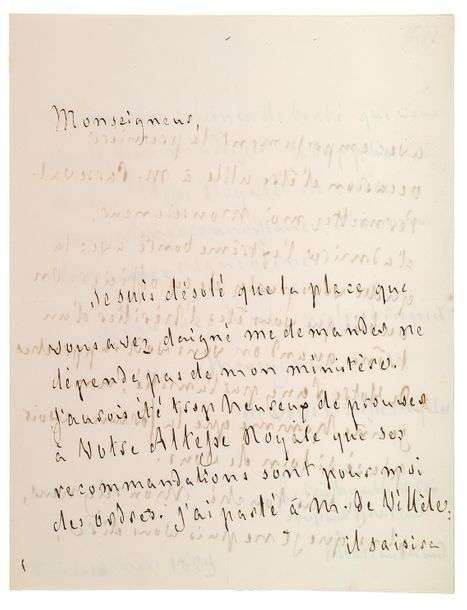 Monseigneur,
Je suis désolé que la place que
vous avez daigné me demander ne
dépende pas de mon ministère.
J'aurois été trop heureux de prouver
à Votre Altesse Royale que ses
recommandations sont pour moi
des ordres. J'ai parlé à M. de Villèle;
il saisira